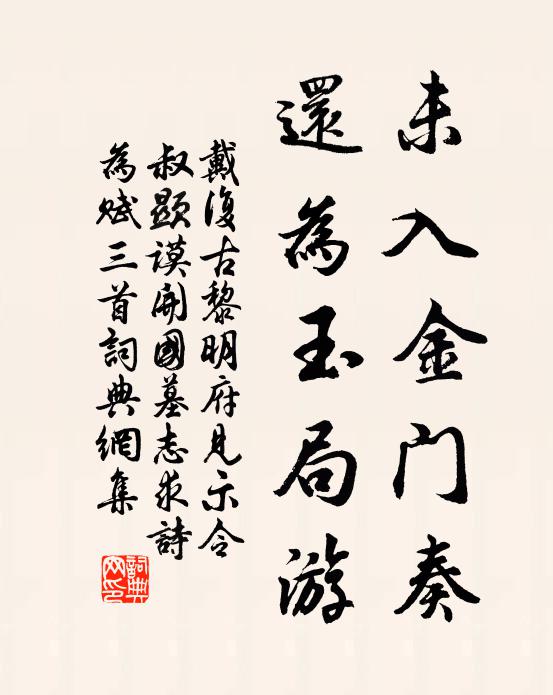 未入金门奏
還為玉局游
戴復古黎明府見示令
叔顯謨開國墓志求詩
為赋三首詞典網集
詞典网印